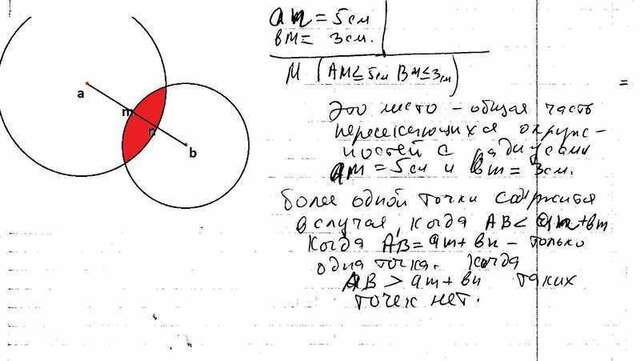 am = 5см
вм = 3см.
M (AM ≤ 5см BM ≤ 3см)
a
m
n
b
=
Это место – общая часть
пересекающихся окруж-
ностей с радиусами
am = 5см и вm = 3см.
Более одной точки содржится
в случая, когда AB < am + вm
Когда AB = am + вн – только
одна точка. Когда
AB > am + вн таких
точек нет.